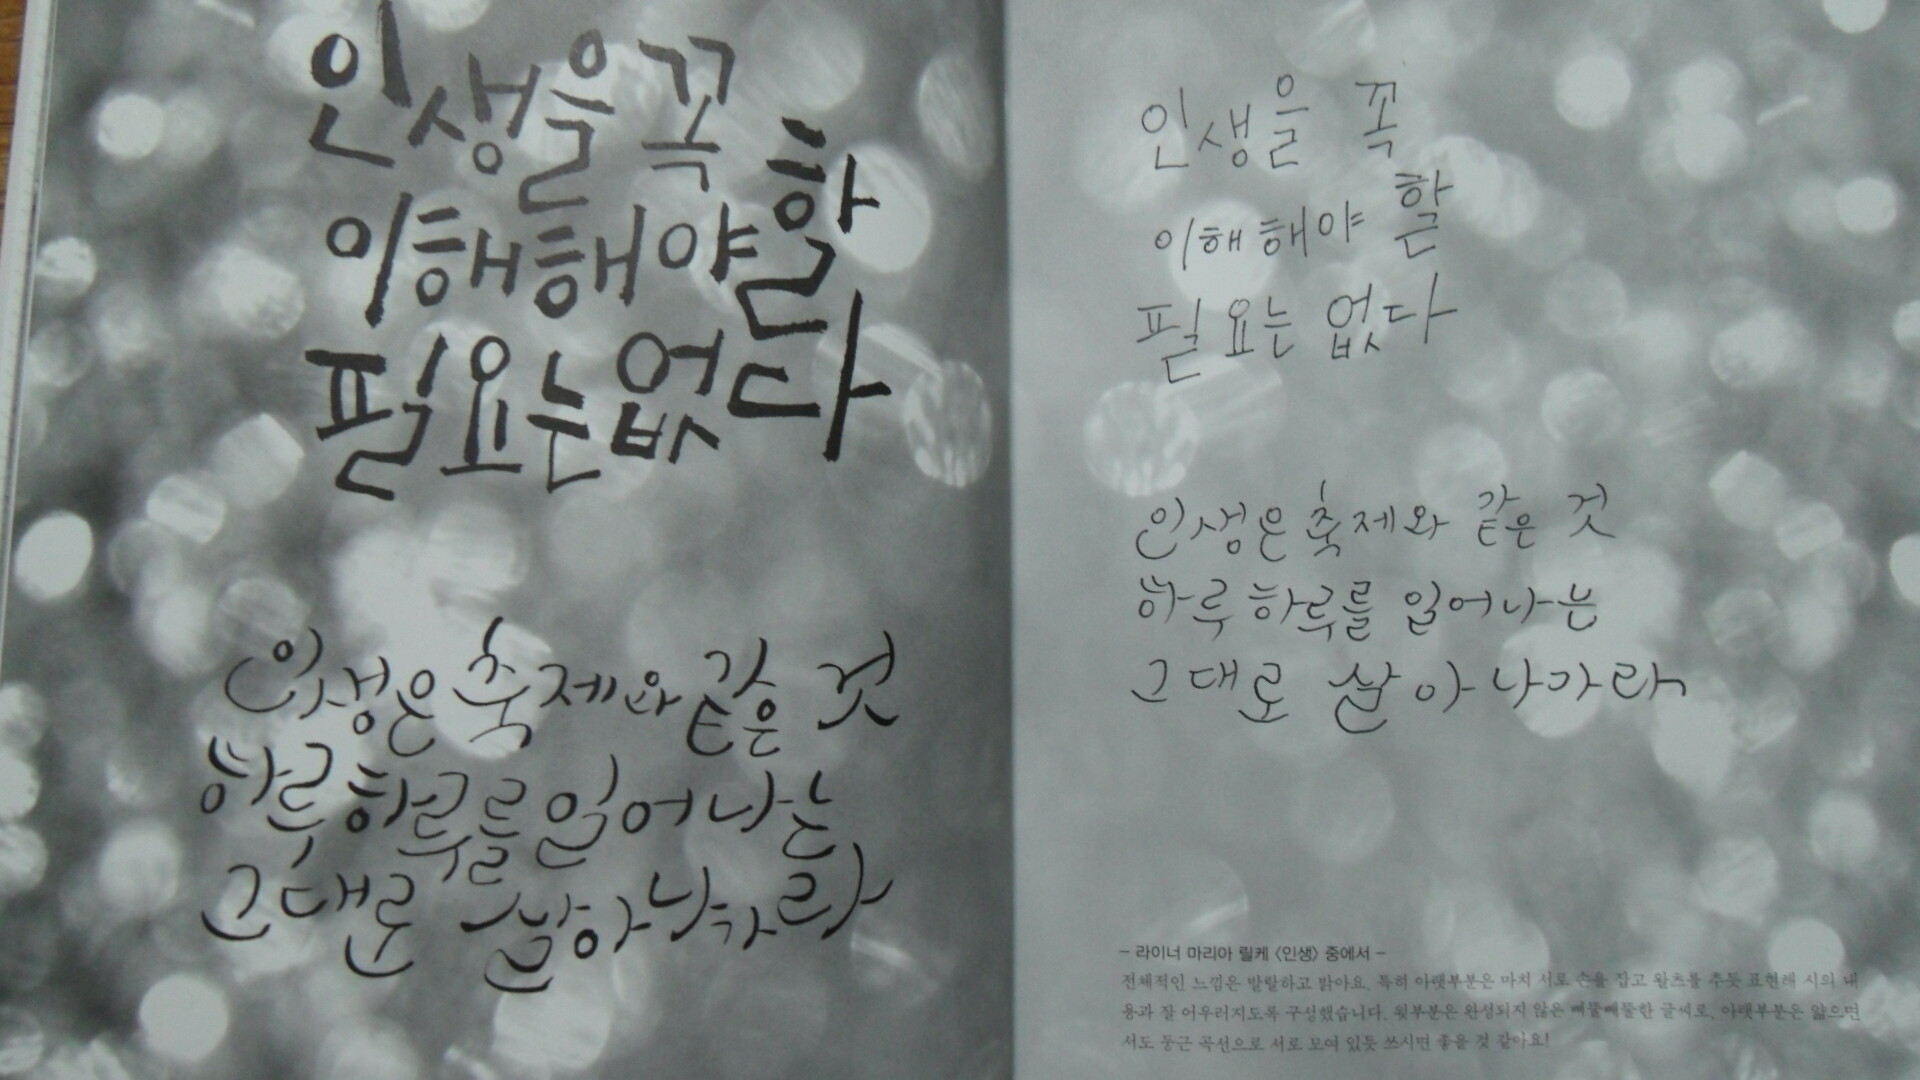 인생을 꼭
이해해야 할
필요는 없다
인생은 축제와 같은 것
하루하루를 일어나는
그대로 살아나가라
인생을 꼭
이해해야 할
필요는 없다
인생은 축제와 같은 것
하루하루를 일어나는
그대로 살아나가라
- 라이너 마리아 릴케 <인생> 중에서 -
전체적인 느낌은 발랄하고 밝아요. 특히 아랫부분은 마치 서로 손을 잡고 왈츠를 추듯 표현해 시의 내
용과 잘 어우러지도록 구성했습니다. 윗부분은 완성되지 않은 삐뚤빼뚤한 글씨로, 아랫부분은 얇으면
서도 둥근 곡선으로 서로 모여 있듯 쓰시면 좋을 것 같아요!